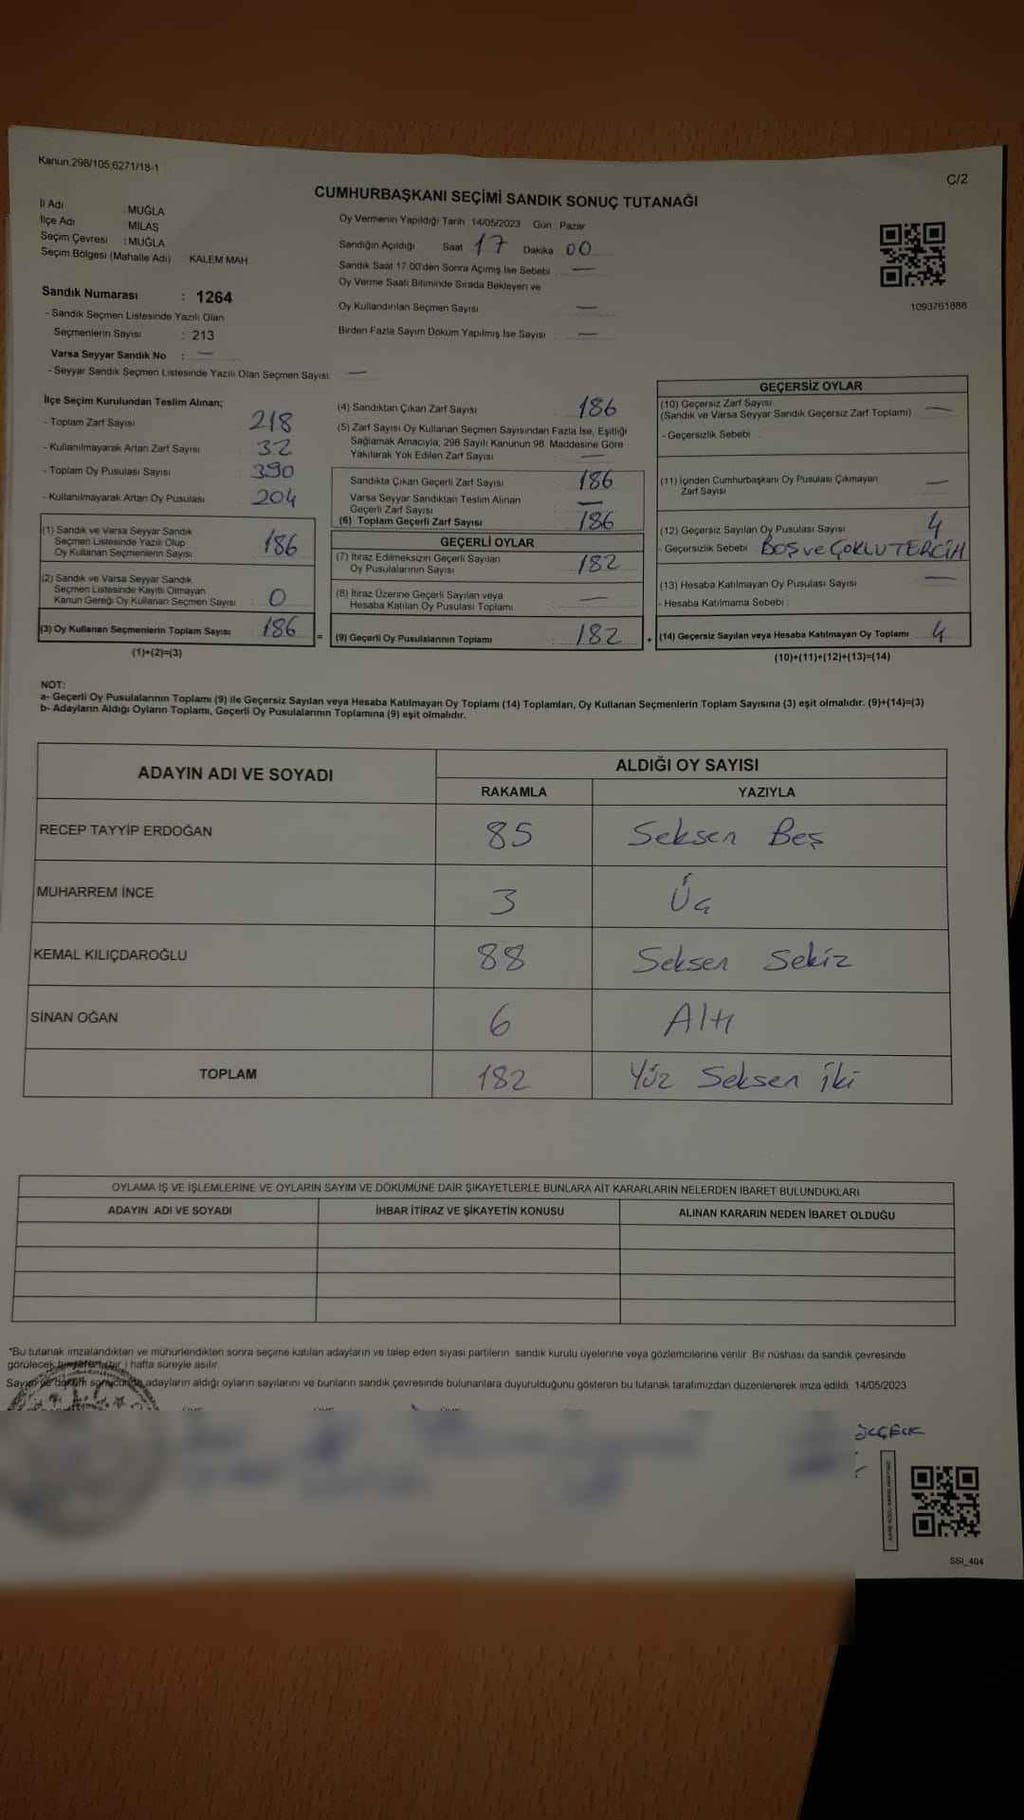 Kanun.298/105,6271/18-1
C/2
CUMHURBAŞKANI SEÇİMİ SANDIK SONUÇ TUTANAĞI
İl Adı : MUĞLA
İlçe Adı MİLAS
Seçim Çevresi : MUĞLA
Seçim Bölgesi (Mahalle Adı) KALEM MAH
Sandık Numarası : 1264
- Sandık Seçmen Listesinde Yazılı Olan
Seçmenlerin Sayısı : 213
Varsa Seyyar Sandık No : —
- Seyyar Sandık Seçmen Listesinde Yazılı Olan Seçmen Sayısı —
Oy Vermenin Yapıldığı Tarih 14/05/2023 Gün : Pazar
Sandığın Açıldığı Saat 17 Dakika 00
Sandık Saat 17.00'den Sonra Açımış İse Sebebi —
Oy Verme Saati Bitiminde Sırada Bekleyen ve
Oy Kullandırılan Seçmen Sayısı —
Birden Fazla Sayım Döküm Yapılmış İse Sayısı —
1093761888
İlçe Seçim Kurulundan Teslim Alınan;
- Toplam Zarf Sayısı 218
- Kullanılmayarak Artan Zarf Sayısı 32
- Toplam Oy Pusulası Sayısı 390
- Kullanılmayarak Artan Oy Pusulası 204
(1) Sandık ve Varsa Seyyar Sandık
Seçmen Listesinde Yazılı Olup
Oy Kullanan Seçmenlerin Sayısı 186
(2) Sandık ve Varsa Seyyar Sandık
Seçmen Listesinde Kayıtlı Olmayan
Kanun Gereği Oy Kullanan Seçmen Sayısı 0
(3) Oy Kullanan Seçmenlerin Toplam Sayısı 186 =
(1)+(2)=(3)
(4) Sandıktan Çıkan Zarf Sayısı 186
(5) Zarf Sayısı Oy Kullanan Seçmen Sayısından Fazla İse, Eşitliği
Sağlamak Amacıyla, 298 Sayılı Kanunun 98. Maddesine Göre
Yakılarak Yok Edilen Zarf Sayısı —
Sandıkta Çıkan Geçerli Zarf Sayısı 186
Varsa Seyyar Sandıktan Teslim Alınan
Geçerli Zarf Sayısı —
(6) Toplam Geçerli Zarf Sayısı 186
GEÇERLİ OYLAR
(7) İtiraz Edilmeksizin Geçerli Sayılan
Oy Pusulalarının Sayısı 182
(8) İtiraz Üzerine Geçerli Sayılan veya
Hesaba Katılan Oy Pusulası Toplamı —
(9) Geçerli Oy Pusulalarının Toplamı 182 +
GEÇERSİZ OYLAR
(10) Geçersiz Zarf Sayısı
(Sandık ve Varsa Seyyar Sandık Geçersiz Zarf Toplamı) —
- Geçersizlik Sebebi
(11) İçinden Cumhurbaşkanı Oy Pusulası Çıkmayan
Zarf Sayısı —
(12) Geçersiz Sayılan Oy Pusulası Sayısı 4
- Geçersizlik Sebebi BOŞ ve ÇOKLU TERCİH
(13) Hesaba Katılmayan Oy Pusulası Sayısı —
- Hesaba Katılmama Sebebi :
(14) Geçersiz Sayılan veya Hesaba Katılmayan Oy Toplamı 4
(10)+(11)+(12)+(13)=(14)
NOT:
a- Geçerli Oy Pusulalarının Toplamı (9) ile Geçersiz Sayılan veya Hesaba Katılmayan Oy Toplamı (14) Toplamları, Oy Kullanan Seçmenlerin Toplam Sayısına (3) eşit olmalıdır. (9)+(14)=(3)
b- Adayların Aldığı Oyların Toplamı, Geçerli Oy Pusulalarının Toplamına (9) eşit olmalıdır.
ADAYIN ADI VE SOYADI ALDIĞI OY SAYISI
RAKAMLA YAZIYLA
RECEP TAYYİP ERDOĞAN 85 Seksen Beş
MUHARREM İNCE 3 Üç
KEMAL KILIÇDAROĞLU 88 Seksen Sekiz
SİNAN OĞAN 6 Altı
TOPLAM 182 Yüz Seksen İki
OYLAMA İŞ VE İŞLEMLERİNE VE OYLARIN SAYIM VE DÖKÜMÜNE DAİR ŞİKAYETLERLE BUNLARA AİT KARARLARIN NELERDEN İBARET BULUNDUKLARI
ADAYIN ADI VE SOYADI İHBAR İTİRAZ VE ŞİKAYETİN KONUSU ALINAN KARARIN NEDEN İBARET OLDUĞU
*Bu tutanak imzalandıktan ve mühürlendikten sonra seçime katılan adayların ve talep eden siyasi partilerin sandık kurulu üyelerine veya gözlemcilerine verilir. Bir nüshası da sandık çevresinde
görülecek bir yere bir hafta süreyle asılır.
Sayım ve döküm sonucunda adayların aldığı oyların sayılarını ve bunların sandık çevresinde bulunanlara duyurulduğunu gösteren bu tutanak tarafımızdan düzenlenerek imza edildi. 14/05/2023
SSI_404